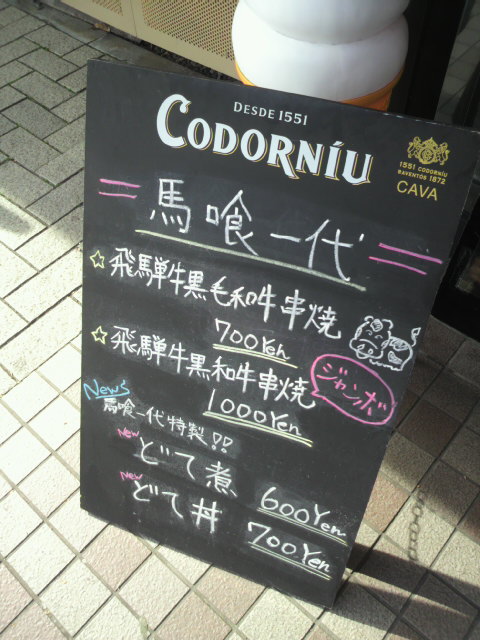 DESDE 1551
CODORNÍU
1551 CODORNÍU
RAVENTÓS 1872
CAVA
馬喰一代
☆飛騨牛黒毛和牛串焼
700Yen
☆飛騨牛黒和牛串焼
ジャンボ
1000Yen
News
馬喰一代特製!!
new
どて煮 600Yen
new
どて丼 700Yen